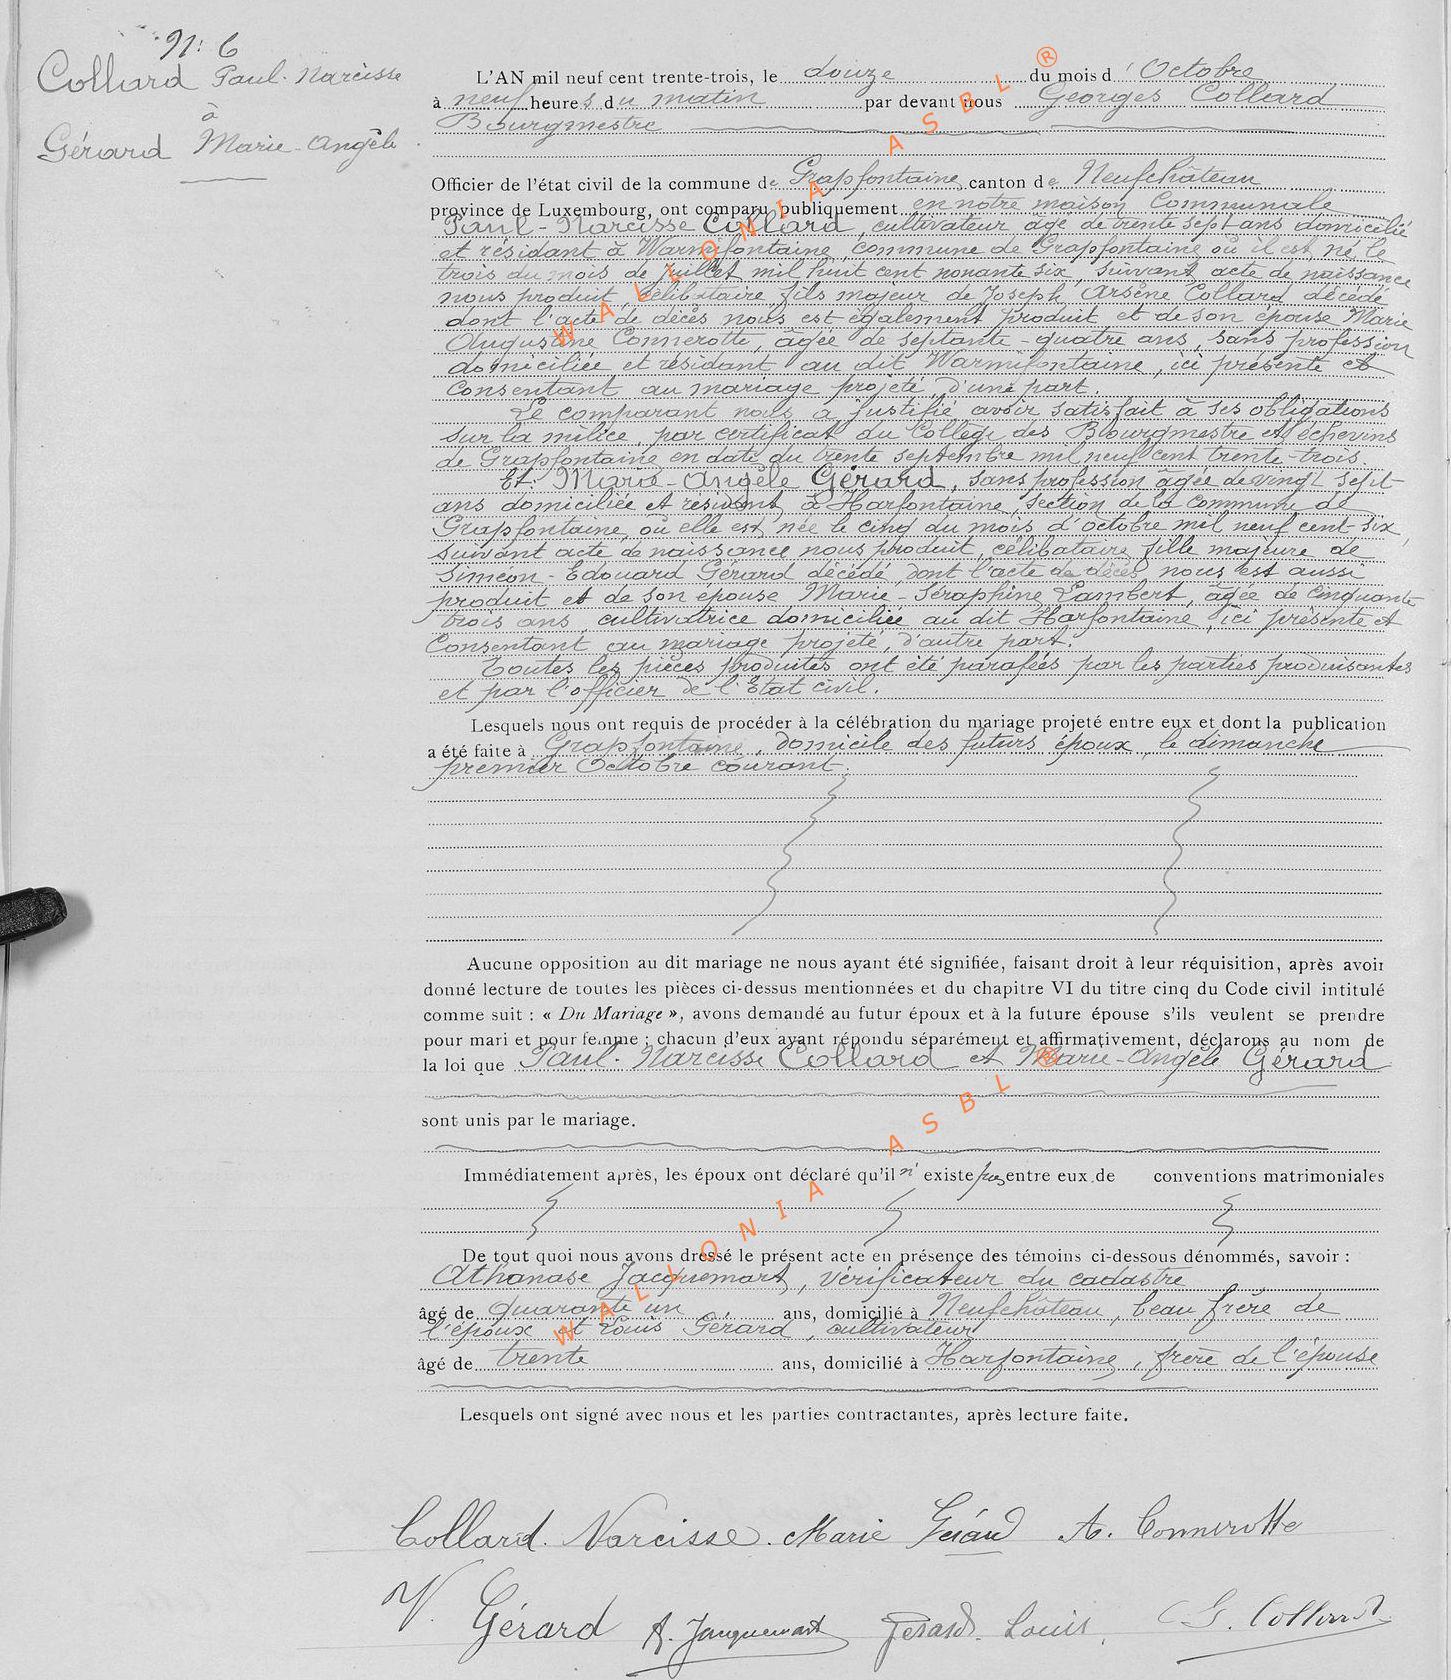 N: 6
Collard Paul-Narcisse
à
Gérard Marie-Angèle
L'AN mil neuf cent trente-trois, le douze du mois d'Octobre
à neuf heures du matin par devant nous Georges Collard
Bourgmestre
Officier de l'état civil de la commune de Grapfontaine canton de Neufchâteau
province de Luxembourg, ont comparu publiquement en notre maison Communale
Paul-Narcisse Collard, cultivateur âgé de trente sept ans domicilié
et résidant à Warmifontaine, commune de Grapfontaine où il est né, le
trois du mois de juillet mil huit cent nonante six, suivant acte de naissance
nous produit, célibataire fils majeur de Joseph Arsène Collard décédé
dont l'acte de décès nous est également produit et de son épouse Marie
Augustine Connerotte, âgée de septante-quatre ans, sans profession
domiciliée et résidant au dit Warmifontaine, ici présente et
consentant au mariage projeté, d'une part.
Le comparant nous a justifié avoir satisfait à ses obligations
sur la milice, par certificat du Collège des Bourgmestre et échevins
de Grapfontaine en date du trente septembre mil neuf cent trente-trois.
Et Marie-Angèle Gérard, sans profession âgée de vingt sept
ans domiciliée et résidant à Harfontaine, section de la commune de
Grapfontaine, où elle est née le cinq du mois d'octobre mil neuf cent-six,
suivant acte de naissance nous produit, célibataire fille majeure de
Siméon-Edouard Gérard décédé, dont l'acte de décès nous est aussi
produit et de son épouse Marie-Séraphine Lambert, âgée de cinquante
trois ans, cultivatrice domiciliée au dit Harfontaine, ici présente et
Consentant au mariage projeté, d'autre part.
Toutes les pièces produites ont été parafées par les parties produisantes
et par l'officier de l'Etat civil.
Lesquels nous ont requis de procéder à la célébration du mariage projeté entre eux et dont la publication
a été faite à Grapfontaine, domicile des futurs époux, le dimanche
premier Octobre courant.
Aucune opposition au dit mariage ne nous ayant été signifiée, faisant droit à leur réquisition, après avoir
donné lecture de toutes les pièces ci-dessus mentionnées et du chapitre VI du titre cinq du Code civil intitulé
comme suit : « Du Mariage », avons demandé au futur époux et à la future épouse s'ils veulent se prendre
pour mari et pour femme ; chacun d'eux ayant répondu séparément et affirmativement, déclarons au nom de
la loi que Paul-Narcisse Collard et Marie-Angèle Gérard
sont unis par le mariage.
Immédiatement après, les époux ont déclaré qu'il n'existe pas entre eux de conventions matrimoniales
De tout quoi nous avons dressé le présent acte en présence des témoins ci-dessous dénommés, savoir :
Athanase Jacquemart, vérificateur du cadastre
âgé de quarante un ans, domicilié à Neufchâteau, beau frère de
l'époux et Louis Gérard, cultivateur
âgé de trente ans, domicilié à Harfontaine, frère de l'épouse
Lesquels ont signé avec nous et les parties contractantes, après lecture faite.
Collard. Narcisse. Marie Gérard A. Connerotte
V. Gérard A. Jacquemart Gérard. Louis. G. Collard
WALLONIA ASBL ®
WALLONIA ASBL ®